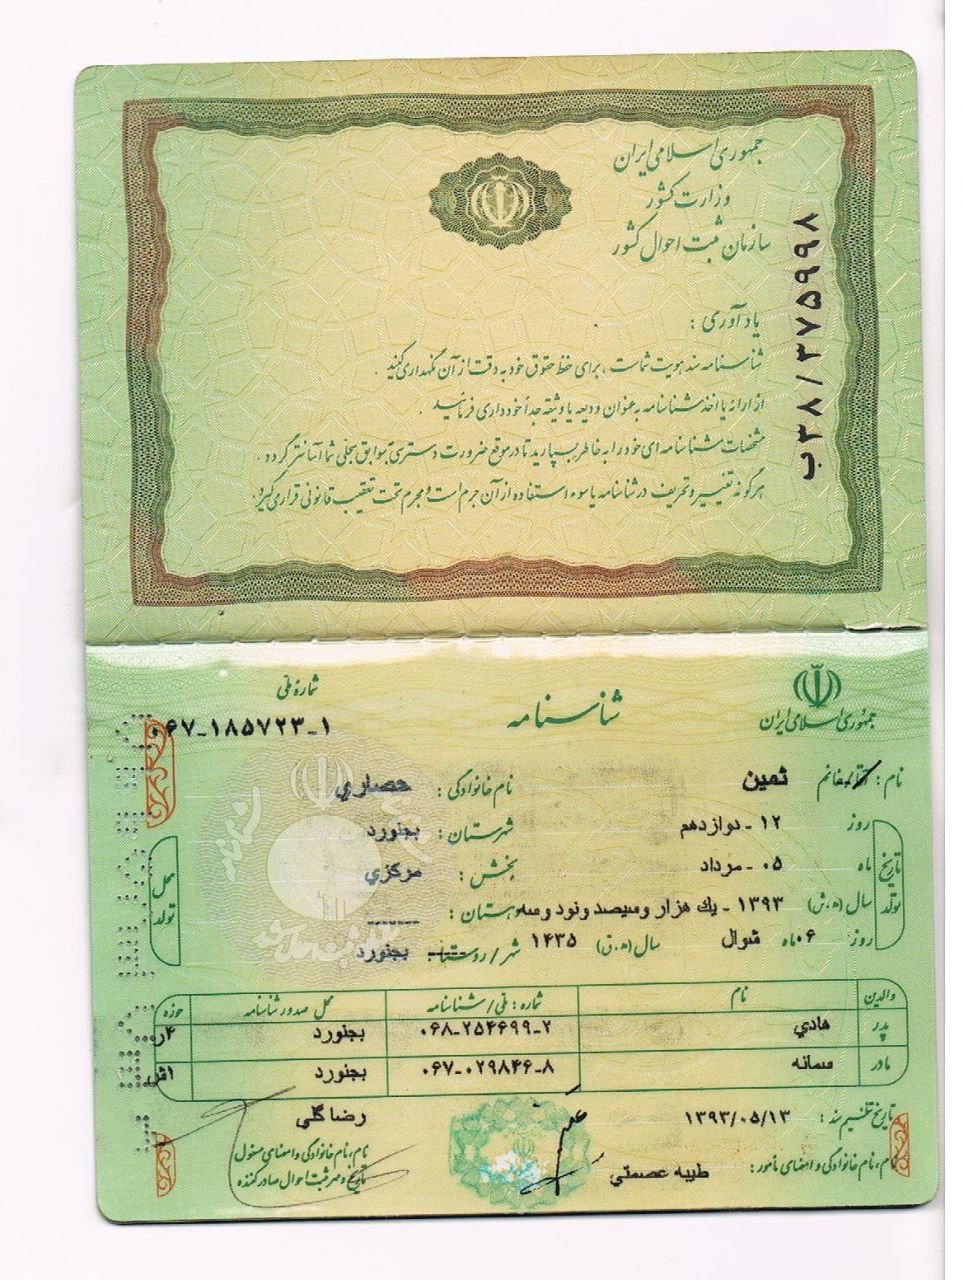 جمهوری اسلامی ایران
وزارت کشور
سازمان ثبت احوال کشور
ب۳۸/۲۷۵۹۹۸
یادآوری :
شناسنامه سند هویت شماست ، برای حفظ حقوق خود به دقت از آن نگهداری کنید .
از ارائه یا اخذ شناسنامه به عنوان ودیعه یا وثیقه جداً خودداری فرمائید .
مشخصات شناسنامه ای خود را به خاطر بسپارید تا در موقع ضرورت دسترسی به سوابق سجلی شما آسانتر گردد .
هرگونه تغییر و تحریف در شناسنامه یا سوء استفاده از آن جرم است و مجرم تحت تعقیب قانونی قرار می گیرد.
جمهوری اسلامی ایران
شناسنامه
شماره ملی
۰۶۷-۱۸۵۷۲۳-۱
نام : خانم ثمین نام خانوادگی : حصاري
تاریخ تولد
روز ۱۲ - دوازدهم شهرستان : بجنورد
ماه ۰۵ - مرداد بخش : مرکزي
سال (ه.ش) ۱۳۹۳ - یك هزار وسیصد ونود وسه دهستان : -------
روز: ۰۶ ماه شوال سال (ه.ق) ۱۴۳۵ شهر/روستا : بجنورد
محل تولد
والدین نام شماره : ملی/شناسنامه محل صدور شناسنامه حوزه
پدر هادي ۰۶۸-۲۵۴۶۹۹-۲ بجنورد ۴ر
مادر سمانه ۰۶۷-۰۲۹۸۴۶-۸ بجنورد ۱ش
تاریخ تنظیم سند : ۱۳۹۳/۰۵/۱۳ رضا گلي
نام، نام خانوادگی و امضای مأمور : طیبه عصمتي
نام، نام خانوادگی و امضای مسئول
تاریخ و مهر ثبت احوال صادر کننده